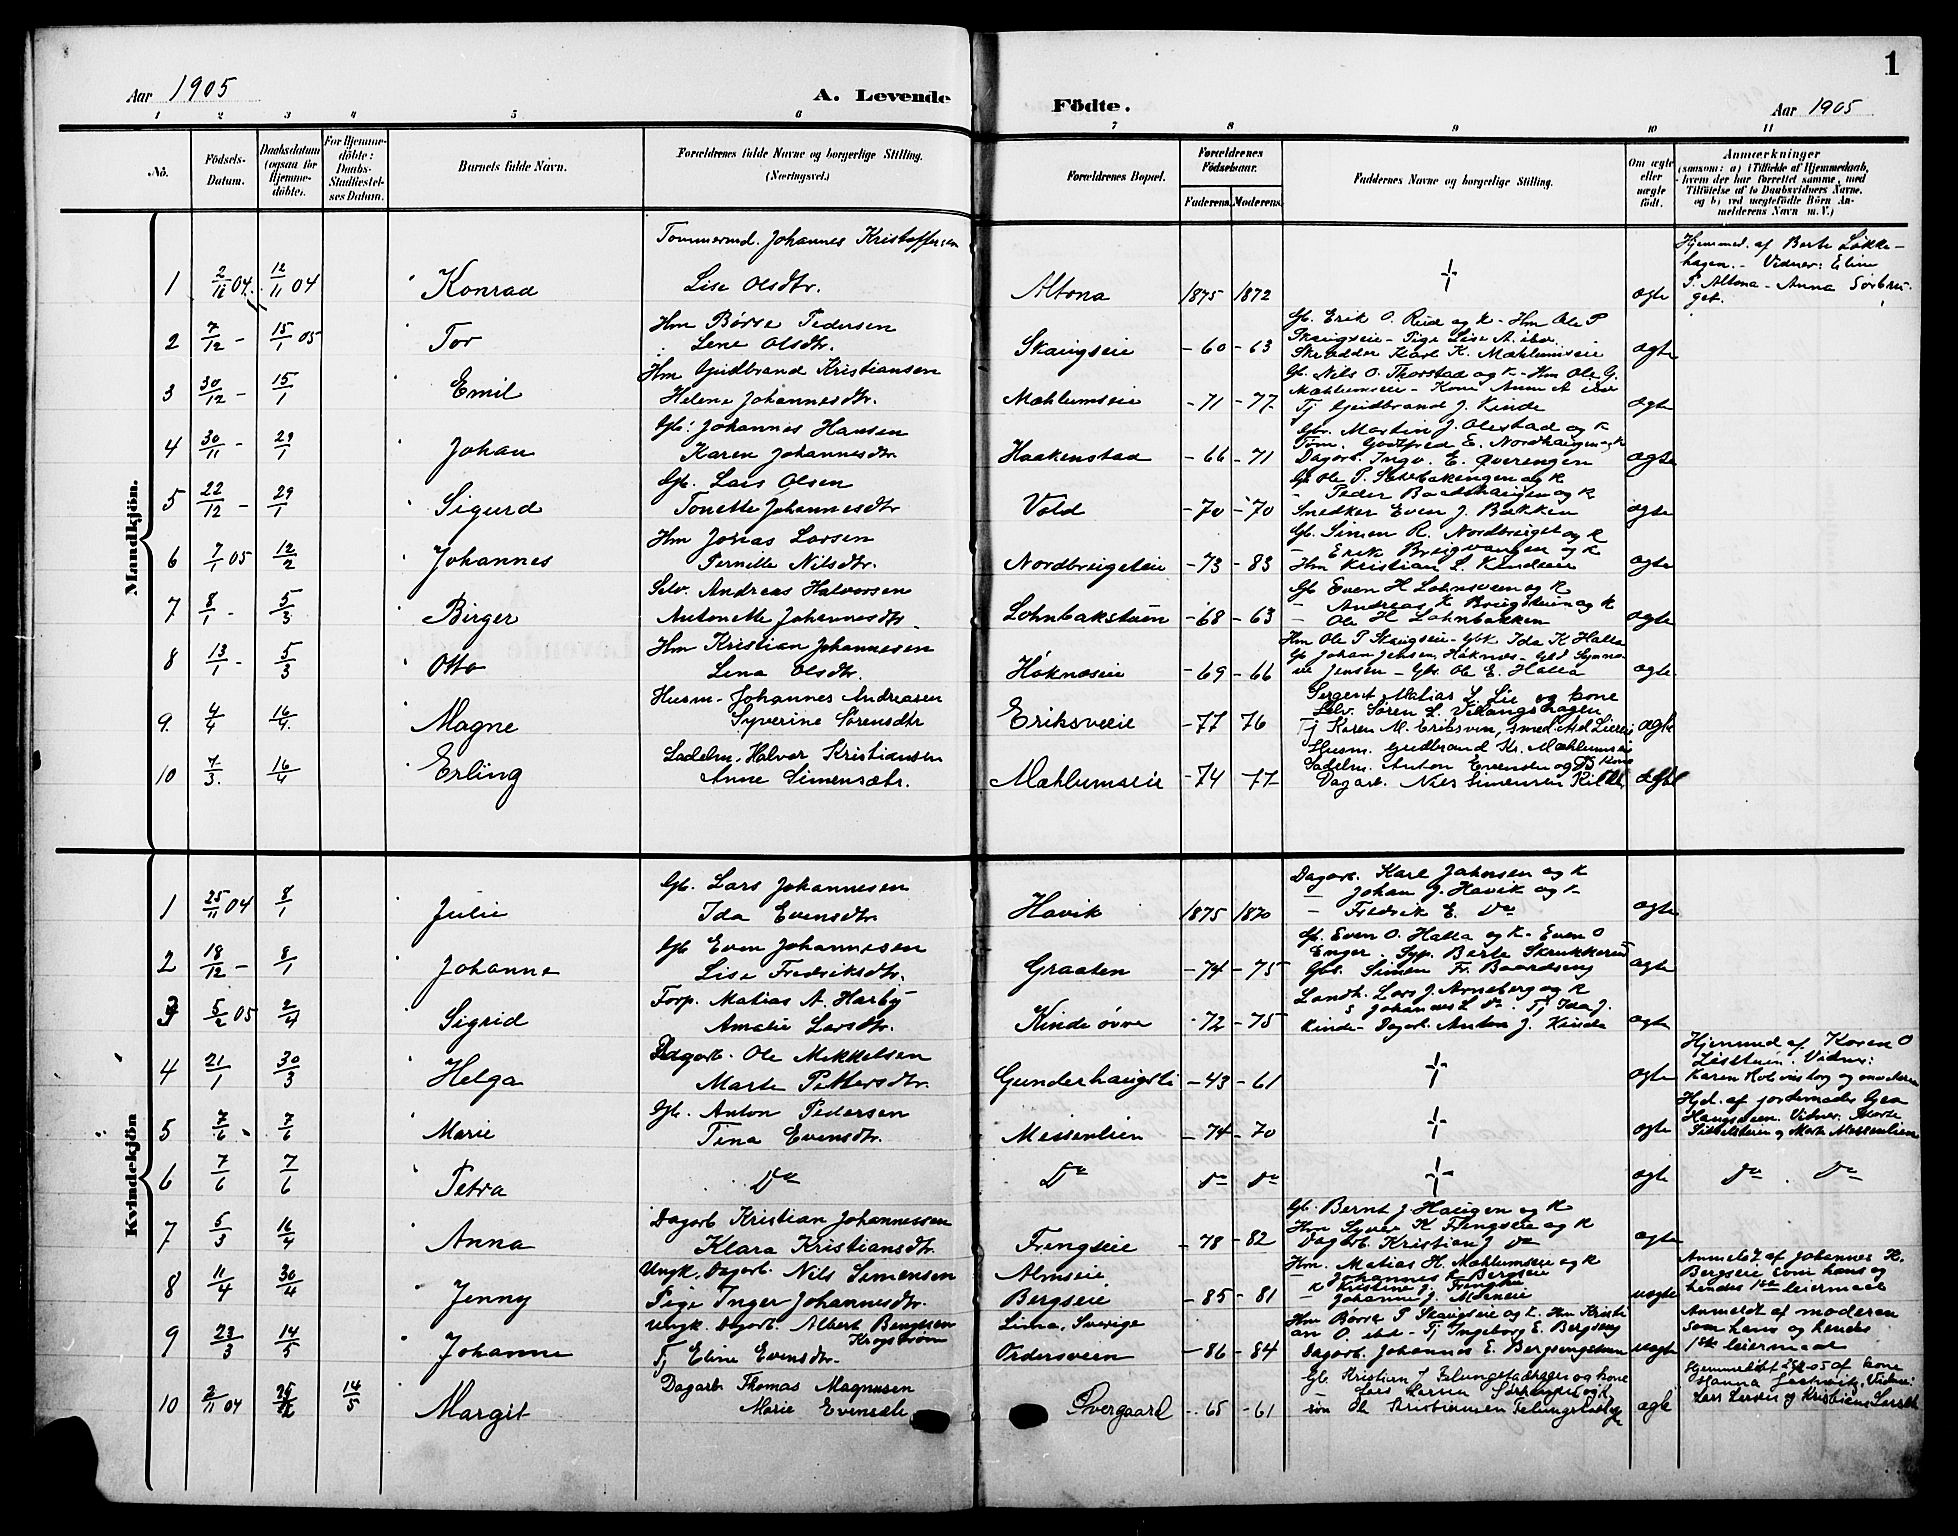 1
Aar 1905
A. Levende Födte.
Aar 1905
1 2 3 4 5 6 7 8 9 10 11
No.
Födsels-Datum.
Daabsdatum (ogsaa for Hjemmedöbte).
For Hjemmedöbte: Daabs-Stadfæstelses Datum.
Barnets fulde Navn.
Forældrenes fulde Navne og borgerlige Stilling. (Næringsvei.)
Forældrenes Bopæl.
Forældrenes Födselsaar.
Faderens. Moderens.
Faddernes Navne og borgerlige Stilling.
Om ægte eller uægte født.
Anmærkninger
(saasom: a) i Tilfælde af Hjemmedaab, hvem der har forrettet samme, med Tilføielse af to Daabsvidners Navne, og b) ved uægtefödte Börn Anmelderens Navn m. V.)
Mandkjön.
Tømmermd. Johannes Kristoffersen
1 2/11 04. 12/11 04 Konrad Lise Olsdtr. Altona 1875 1872 † ægte
Hjemmed. af Berte Løkke-
hagen. - Vidner: Eline
P. Altona - Anna
Hm Børre Pedersen
2 7/12 - 15/1 05 Tor Lene Olsdtr. Skaugseie - 60 - 63 ægte
Gb. Erik O. Rud og K - Hm Ole P
Skaugseie - Pige Lise A. ibd.
Skrædder Karl K. Mæhlumseie
Hm Gudbrand Kristiansen
3 30/12 - 15/1 Emil Helene Johannesdtr. Mæhlumseie - 71 - 77 ægte
Gb. Nils O. Thorstad og K - Hm Ole G.
Mæhlumseie - Kone Anne A
Tj Gudbrand J. Kinde
Gb. Johannes Hansen
4 30/11 - 29/1 Johan Karen Johannesdtr Haakenstad - 66 - 71 ægte
Gbr. Martin J. Olestad og K
Tøm. Godtfred E. Nordhaugen og K
Dagarb. Ingv. E. Øverengen
Gb. Lars Olsen
5 22/12 - 29/1 Sigurd Tonette Johannesdtr Vold - 70 - 70 ægte
Gb Ole P.
- Peder Baadshaugen og K
Snedker Even J. Bakken
Hm Jonas Larsen
6 7/1 05 12/2 Johannes Pernille Nilsdtr. Nordbreigeteie - 73 - 83 ægte
Gb. Simen R. Nordbreiget og K
- Erik Breigvangen og K
Hm Kristian L. Kindeeie
Selv. Andreas Halvorsen
7 8/1 - 5/3 Birger Antonette Johannesdtr. Lohnbakstuen - 68 - 63 ægte
Gb Even H Lohnsveen og K
- Andreas K og K
- Ole H Lohnbakken
Hm Kristian Johannesen
8 13/1 - 5/3 Otto Lina Olsdtr. Høknæseie - 69 - 66 ægte
Hm Ole P. Skaugseie - Gbk Ida K Halla
Gb. Johan Jensen, Høknæs -
Jensen - Gbr. Ole E. Halla
Husm. Johannes Andreasen
9. 4/4 16/4. Magne Syverine Sørensdtr Eriksveeie - 77 76 ægte
Sergent Matias L. Lie og kone
Selv. Søren L.
Tj Karen M. Eriksven, smed
Sadelm. Halvor Kristiansen
10 7/3. 16/4 Erling Anne Simensdtr. Mæhlumseie - 74 - 77 ægte
Husm. Gudbrand Kr. Mæhlumseie
Sadelm. Anton Evensen og kone
Dagarb. Nils Simensen
Kvindekjön
Gb. Lars Johannesen
1 25/11 04 8/1 Julie Ida Evensdtr. Havik 1875 1870 ægte
Dagarb. Karl Johnsen og K
- Johan J. Havik og K
- Fredrik E. Do
Gb Even Johannesen
2 18/12 - 8/1 Johanne Lise Fredriksdtr. Graaten - 74 - 75 ægte
Gb. Even O. Halla og K - Even O
Enger - Syp. Berte Skrukkerud
Gbs. Simen Fr. Baardseng
Forp. Matias A. Harby
3 5/2 05 2/4 Sigrid Amalie Larsdtr. Kinde øvre - 72 - 75 ægte
Landh. Lars J. Arneberg og K
S Johannes L do - Tj Ida J.
Kinde - Dagarb. Anton J. Kinde
Dagarb. Ole Mikkelsen
4 21/1 30/3 Helga Marte Pettersdtr. Gunderhaugsli - 43 - 61 † ægte
Hjemmed af Karen O
Vidner:
Karen og moderen
Gb. Anton Pedersen
5 7/6 7/6 Marie Tina Evensdtr. Messenlien - 74 - 70 † ægte
Hjd. af jordemoder
Haugsveen. Vidner: Berte
og Marte Messenlien
6 7/6 7/6 Petra Do Do do do † ægte do do
Dagarb Kristian Johannessen
7 5/3 16/4 Anna Klara Kristiansdtr. Frengseie - 78 - 82 ægte
Gb. Bernt J Haugen og K
Hm Syver K Frengseie og K
Dagarb. Kristian J do
Ungk. Dagarb. Nils Simensen Almseie
8 11/4 30/4 Jenny Pige Inger Johannesdtr. Bergseie - 85 - 81 uægte
Hm. Matias H. Mæhlumseie og K
- Johannes K Bergseie
K Kristine J. Frengseie
Johanne J. Moeneie
Anmeldt af Johannes K.
Bergseie som hans og
hendes 1ste leiermaal
Ungk. Dagarb. Albert Bengtsen Krogstrøm Lima, Sverige
9 23/3 14/5 Johanne Tj Eline Evensdtr. Ordersveen - 86 - 84 uægte
Hm Børre P Skaugseie og K. Hm Kristi
an O. ibd - Tj Ingeborg E. Bergseng
Dagarb. Johannes E. Bergsengstuen
Anmeldt af moderen
som hans og hendes
1ste leiermaal
Dagarb. Thomas Magnusen
10 2/11 04 25/12 14/5 Margit Marie Evensdtr Overgaard - 65 - 61 ægte
Gb Kristian J og kone
- Lars Larsen og K
søn Ole Kristiansen
Hjemmedøbt af kone
Hanna Vidner:
Lars Larsen og Kristiane